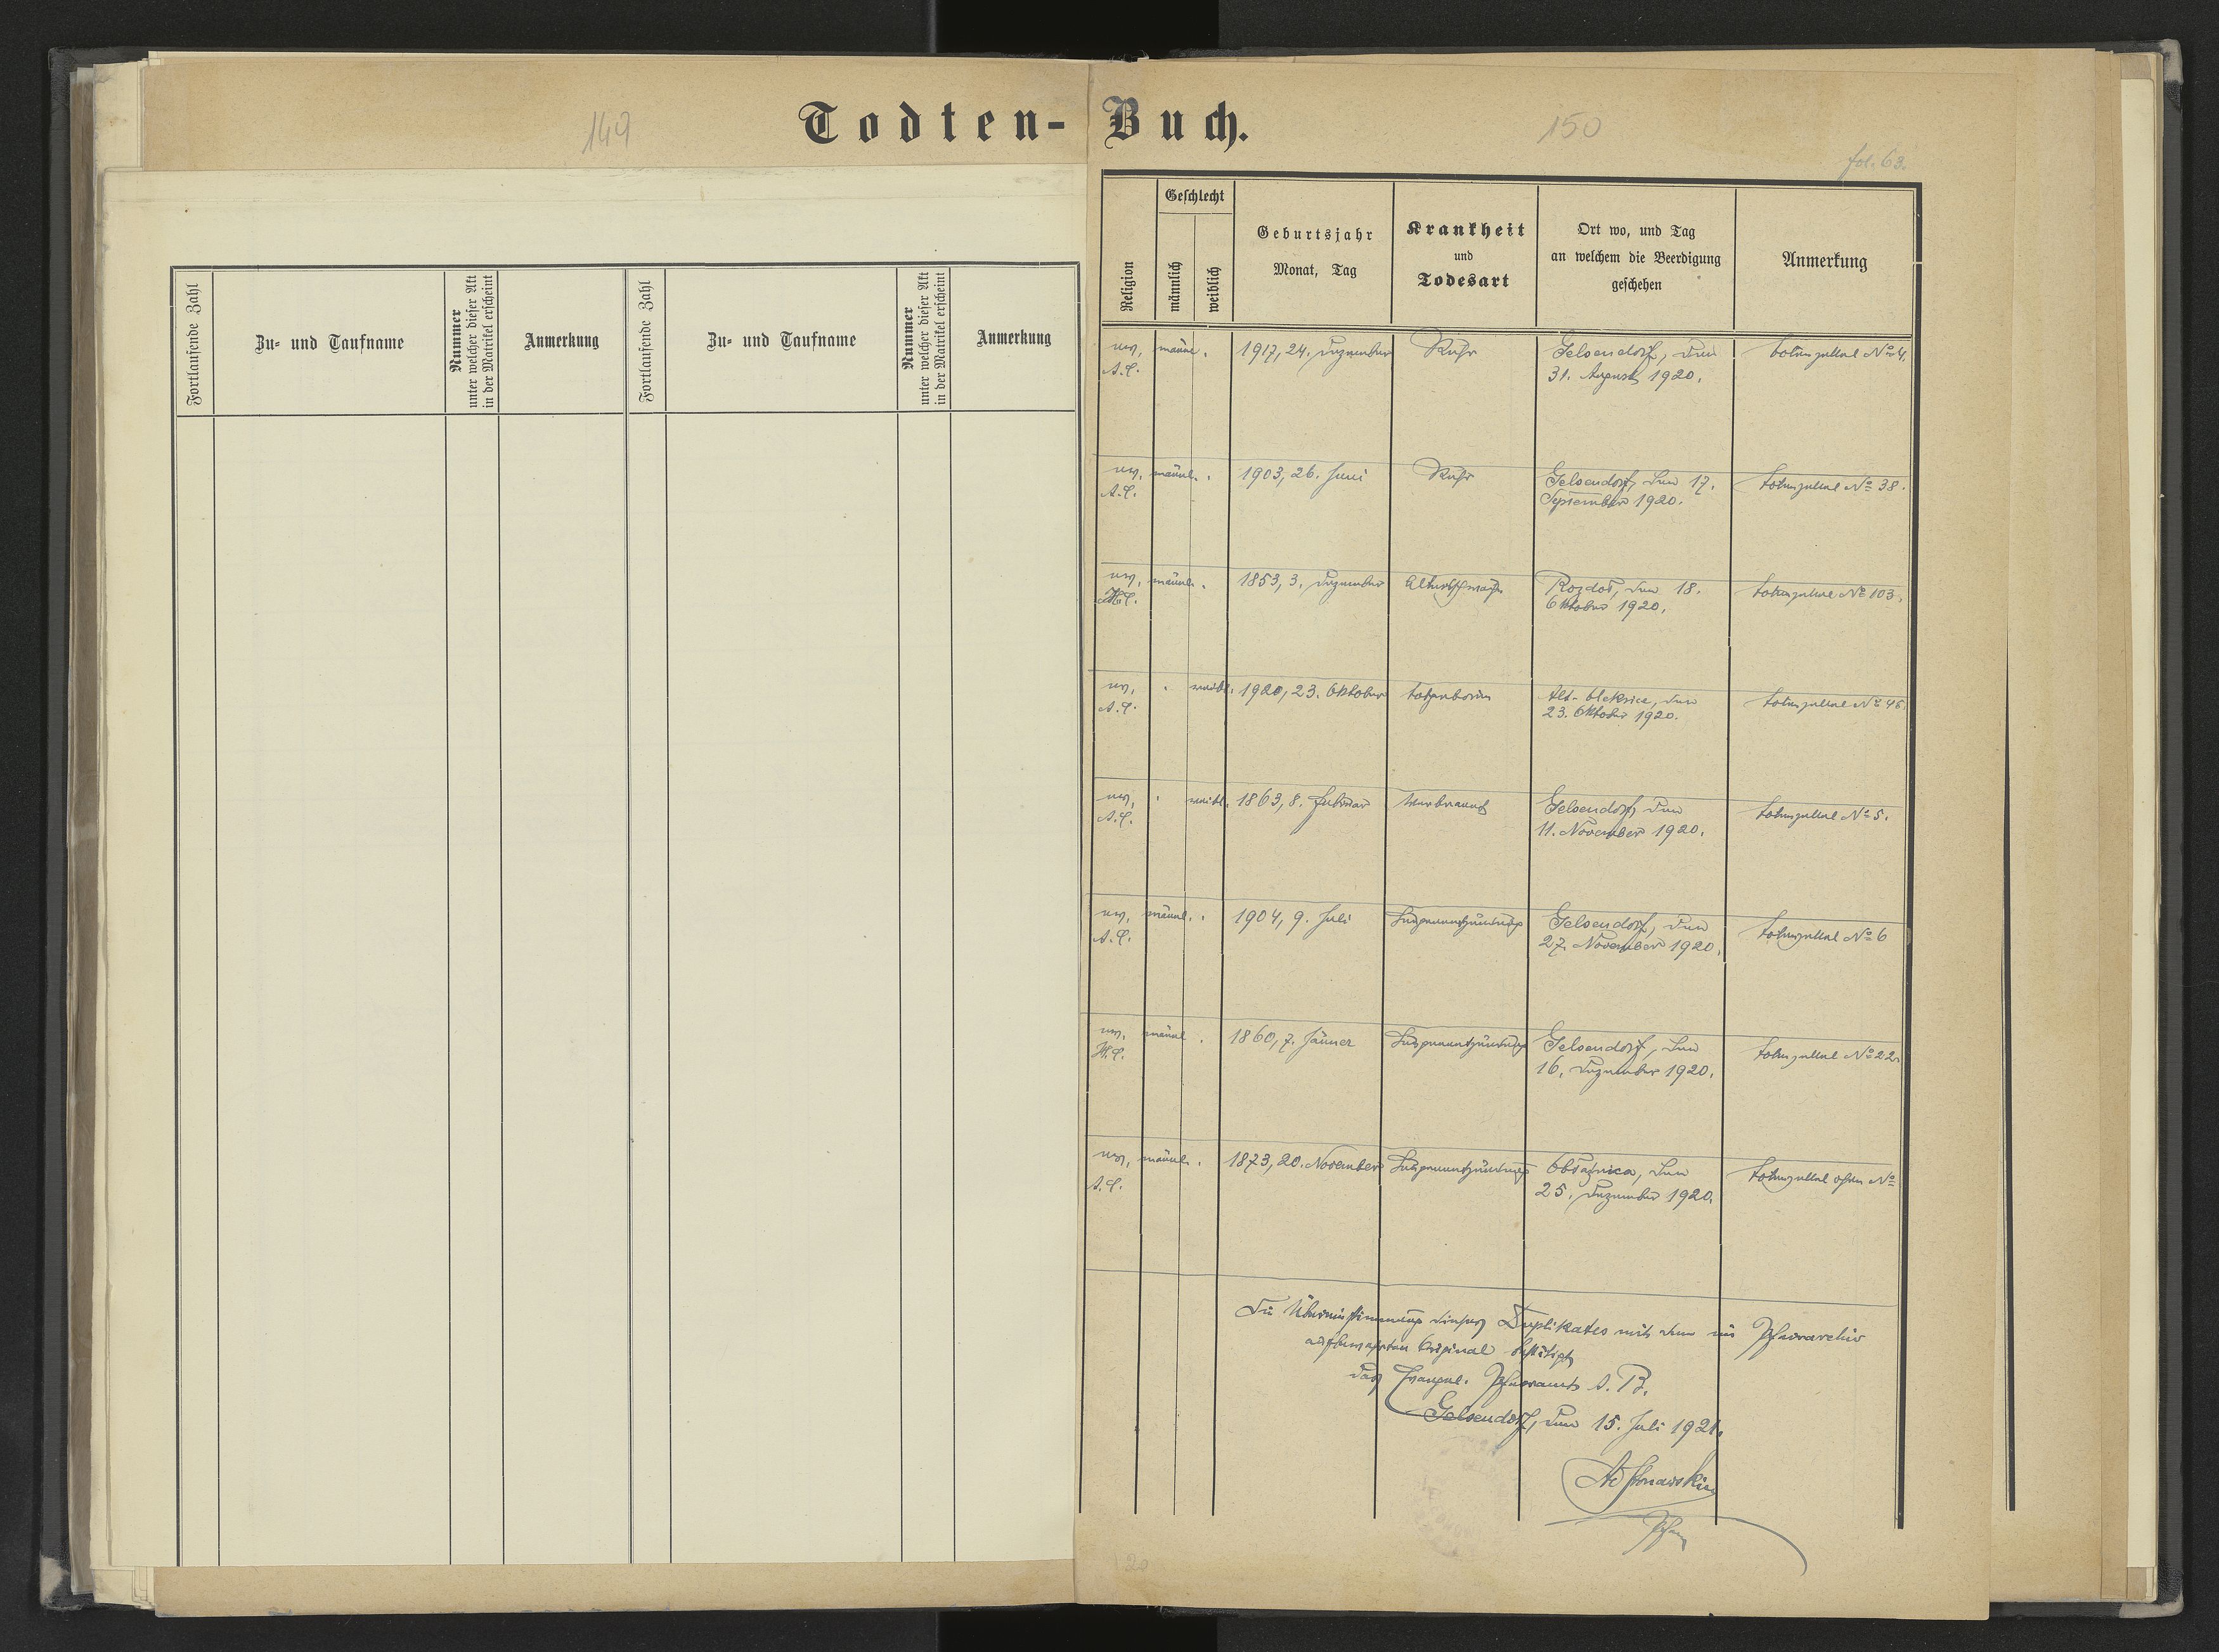 149
Todten-Buch.
150
fol. 63.
Fortlaufende Zahl
Zu- und Taufname
Nummer
unter welcher dieser Akt
in der Matrikel erscheint
Anmerkung
Fortlaufende Zahl
Zu- und Taufname
Nummer
unter welcher dieser Akt
in der Matrikel erscheint
Anmerkung
Religion
Geschlecht
männlich
weiblich
Geburtsjahr
Monat, Tag
Krankheit
und
Todesart
Ort wo, und Tag
an welchem die Beerdigung
geschehen
Anmerkung
ev. männl. 1917, 24. Dezember Ruhr Gelsendorf, den Totenzettel № 4.
A.C. 31. August 1920.
ev. männl. 1903, 26. Juni Ruhr Gelsendorf, den 17. Totenzettel № 38.
A.C. September 1920.
ev. männl. 1853, 3. Dezember Altersschwäche Rozdół, den 18. Totenzettel № 103.
H.C. Oktober 1920.
ev. weibl. 1920, 23. Oktober totgeboren Alt-Oleksice, den Totenzettel № 46.
A.C. 23. Oktober 1920.
ev. weibl. 1863, 8. Februar verbrannt Gelsendorf, den Totenzettel № 5.
A.C. 11. November 1920.
ev. männl. 1904, 9. Juli Lungenentzündung Gelsendorf, den Totenzettel № 6
A.C. 27. November 1920.
ev. männl. 1860, 7. Jänner Lungenentzündung Gelsendorf, den Totenzettel № 22.
H.C. 16. Dezember 1920.
ev. männl. 1873, 20. November Lungenentzündung den Totenzettel ohne №
A.C. 25. Dezember 1920.
Die Übereinstimmung dieses Duplikates mit dem im Pfarrarchiv
aufbewahrten Original bestätigt
das Evangel. Pfarramt A. B.
Gelsendorf, den 15. Juli 1921.
Pfarrer
20